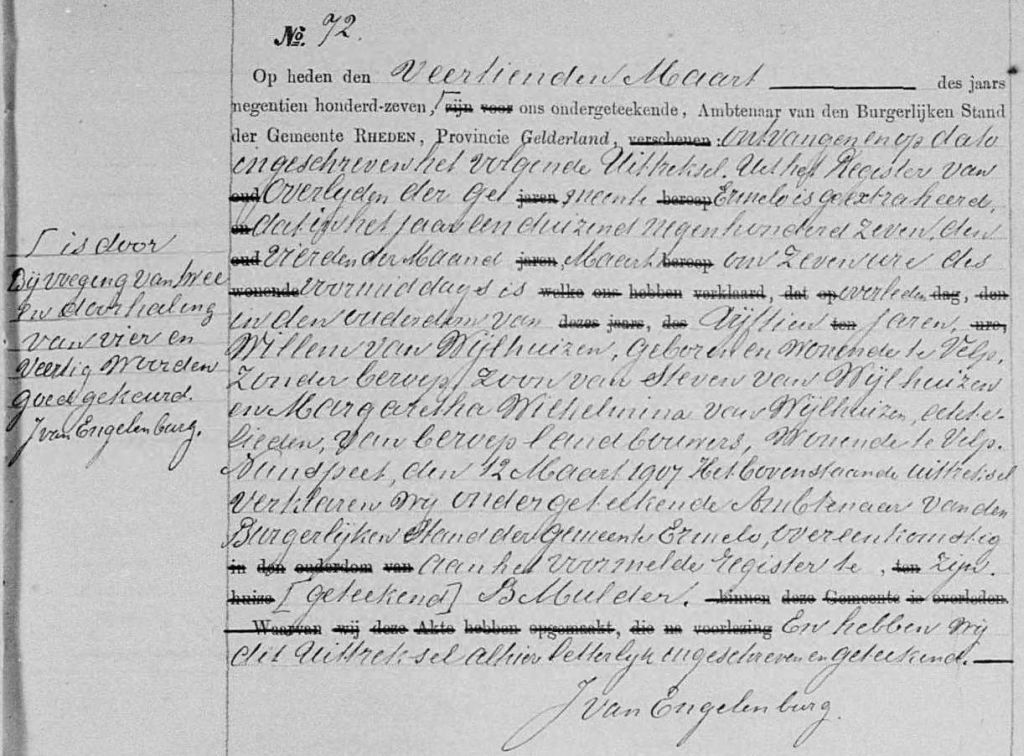 No. 72.
Op heden den Veertienden Maart des jaars
negentien honderd-zeven, ⌈ zijn voor ons ondergeteekende, Ambtenaar van den Burgerlijken Stand
der Gemeente RHEDEN, Provincie Gelderland, verschenen: ontvangen en op dato
ingeschreven het volgende Uittreksel. Uit het Register van
oud Overlijden der Ge jaren meente beroep Ermelo is geëxtraheerd,
en dat in het jaar een duizend negenhonderd zeven, den
oud vierden der Maand jaren, Maart beroep om Zeven ure des
wonende voormiddags is welke ons hebben verklaard, dat op overleden dag, den
in den ouderdom van dezes jaars, des Vijftien ten jaren, ure,
Willem van Wijlhuizen, geboren en wonende te Velp.
Zonder beroep, Zoon van Steven van Wijlhuizen
en Margaretha Wilhelmina van Wijlhuizen, echte-
lieden, van beroep landbouwers, Wonende te Velp.
Nunspeet, den 12 Maart 1907 Het bovenstaande uittreksel
verklaren Wij ondergeteekende Ambtenaar van den
Burgerlijken Stand der Gemeente Ermelo, overeenkomstig
in den ouderdom van aan het voormelde register te, ten zijn.
huize [geteekend] B Mulder. binnen deze Gemeente is overleden.
Waarvan wij deze Akte hebben opgemaakt, die na voorlezing En hebben Wij
dit Uittreksel alhier letterlijk ingeschreven en geteekend.
J van Engelenburg.
⌈ is door
Bijvoeging van twee
en doorhaling
van vier en
Veertig Woorden
goedgekeurd.
J van Engelenburg.